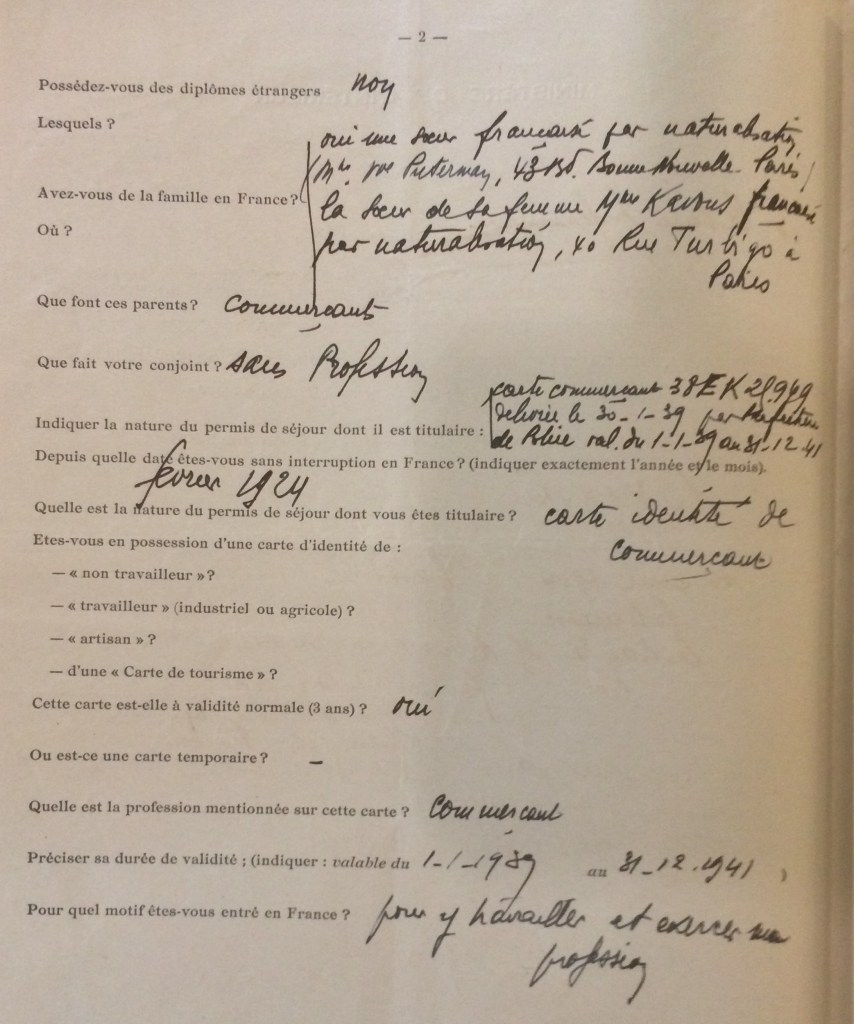 — 2 —
Possédez-vous des diplômes étrangers non
Lesquels ?
oui une sœur française par naturalisation
Mme Vve Puterman, 43 Bd. Bonne Nouvelle. Paris
Avez-vous de la famille en France ?
la sœur de sa femme Mme Kavous française
Où ?
par naturalisation, 40 Rue Turbigo à
Paris
Que font ces parents ? Commerçants
Que fait votre conjoint ? sans Profession
carte commerçant 38EK
délivrée le 30-1-39 par Préfecture
Indiquer la nature du permis de séjour dont il est titulaire :
de Police val. du 1-1-39 au 31-12-41
Depuis quelle date êtes-vous sans interruption en France ? (indiquer exactement l'année et le mois).
février 1924
Quelle est la nature du permis de séjour dont vous êtes titulaire ? carte identité de
commerçant
Etes-vous en possession d'une carte d'identité de :
— « non travailleur » ?
— « travailleur » (industriel ou agricole) ?
— « artisan » ?
— d'une « Carte de tourisme » ?
Cette carte est-elle à validité normale (3 ans) ? oui
Ou est-ce une carte temporaire ? –
Quelle est la profession mentionnée sur cette carte ? Commerçant
Préciser sa durée de validité ; (indiquer : valable du 1-1-1939 au 31-12.1941 )
Pour quel motif êtes-vous entré en France ? pour y travailler et exercer ma
profession